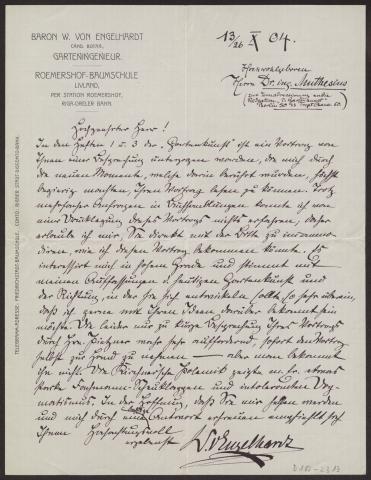 BARON W. VON ENGELHARDT
CAND. BOTAN.
GARTENINGENIEUR.
ROEMERSHOF-BAUMSCHULE
LIVLAND,
PER STATION ROEMERSHOF,
RIGA-ORELER BAHN.
13/26 X 04.
Hochwohlgeboren
Herrn Dr. ing. Muthesius
Hochgeehrter Herr!
In den Heften 1 u. 3 der „Gartenkunst" ist ein Vortrag von
Ihnen einer Besprechung unterzogen worden, der mich durch
die neuen Momente, welche darin berührt wurden, höchst
begierig machten, Ihren Vortrag lesen zu können. Trotz
mehrfacher Anfragen in Buchhandlungen konnte ich von
einer Drucklegung dieses Vortrags nichts erfahren, daher
erlaube ich mir, Sie direkt mit der Bitte zu incommo-
diren, wie ich diesen Vortrag bekommen könnte. Es
interessirt mich in hohem Grade und stimmt mit
meinen Auffassungen d. heutigen Gartenkunst und
der Richtung, in der sie sich entwickeln sollte so sehr überein,
daß ich gerne mit Ihren Ideen darüber bekannt sein
möchte. Die leider nur zu kurze Besprechung Ihres Vortrags
durch Hrn. mehr auffordernd, sofort den Vortrag
selbst zur Hand zu nehmen — aber man bekommt
ihn nicht. Die Polemik zeigte m. E. etwas
starke Fachmann-Scheuklappen und intoleranten Dog-
matismus. In der Hoffnung, daß Sie mir helfen werden
und mich durch eine Antwort erfreuen empfiehlt sich
Ihnen Hochachtungsvoll
ergebenst
W. v. Engelhardt
TELEGRAMM-ADRESSE: FRIEDRICHSTADT-BAUMSCHULE. CONTO: RIGAER STADT-DISCONTO-BANK.